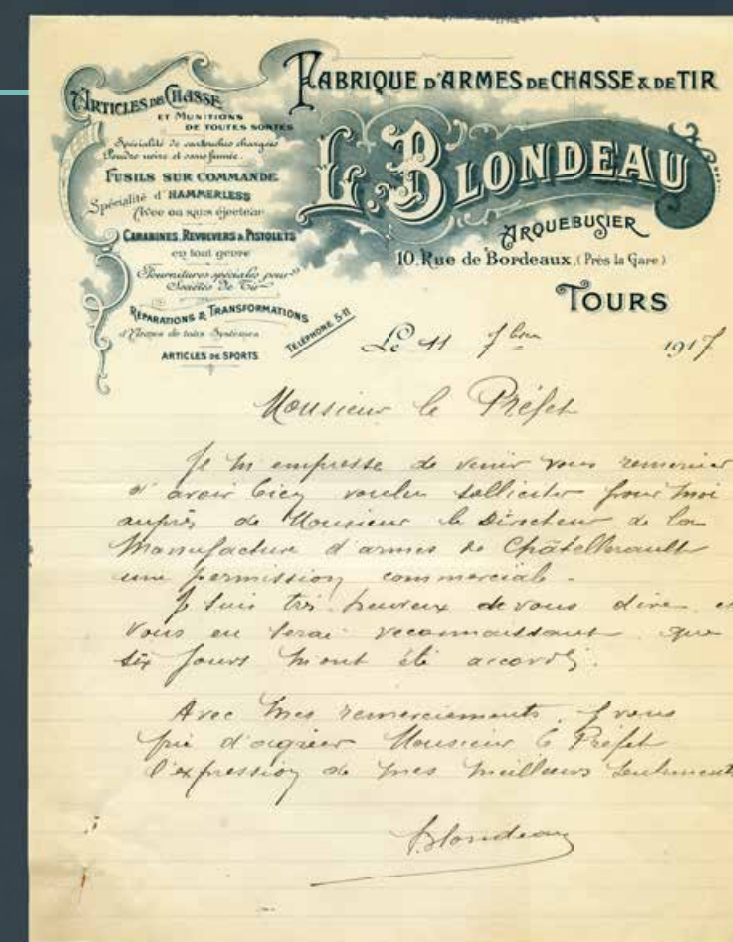 FABRIQUE D'ARMES DE CHASSE & DE TIR
L. BLONDEAU
ARQUEBUSIER
10. Rue de Bordeaux, (Près la Gare)
TOURS
ARTICLES DE CHASSE
ET MUNITIONS
DE TOUTES SORTES
Spécialité de cartouches chargées
Poudre noire et sans fumée.
FUSILS SUR COMMANDE
Spécialité d'HAMMERLESS
Avec ou sans éjecteur
CARABINES, REVOLVERS & PISTOLETS
en tout genre
Fournitures spéciales pour
Sociétés de Tir
RÉPARATIONS & TRANSFORMATIONS
d'Armes de tous Systèmes
ARTICLES DE SPORTS
TÉLÉPHONE 5-11
Le 11 7bre 1917
Monsieur le Préfet
Je m'empresse de venir vous remercier
d'avoir bien voulu solliciter pour moi
auprès de Monsieur le Directeur de la
Manufacture d'armes de Châtellerault
une permission commerciale.
Je suis très heureux de vous dire et
vous en serai reconnaissant que
six jours m'ont été accordés.
Avec mes remerciements, je vous
prie d'agréer Monsieur le Préfet
l'expression de mes meilleurs sentiments
Blondeau